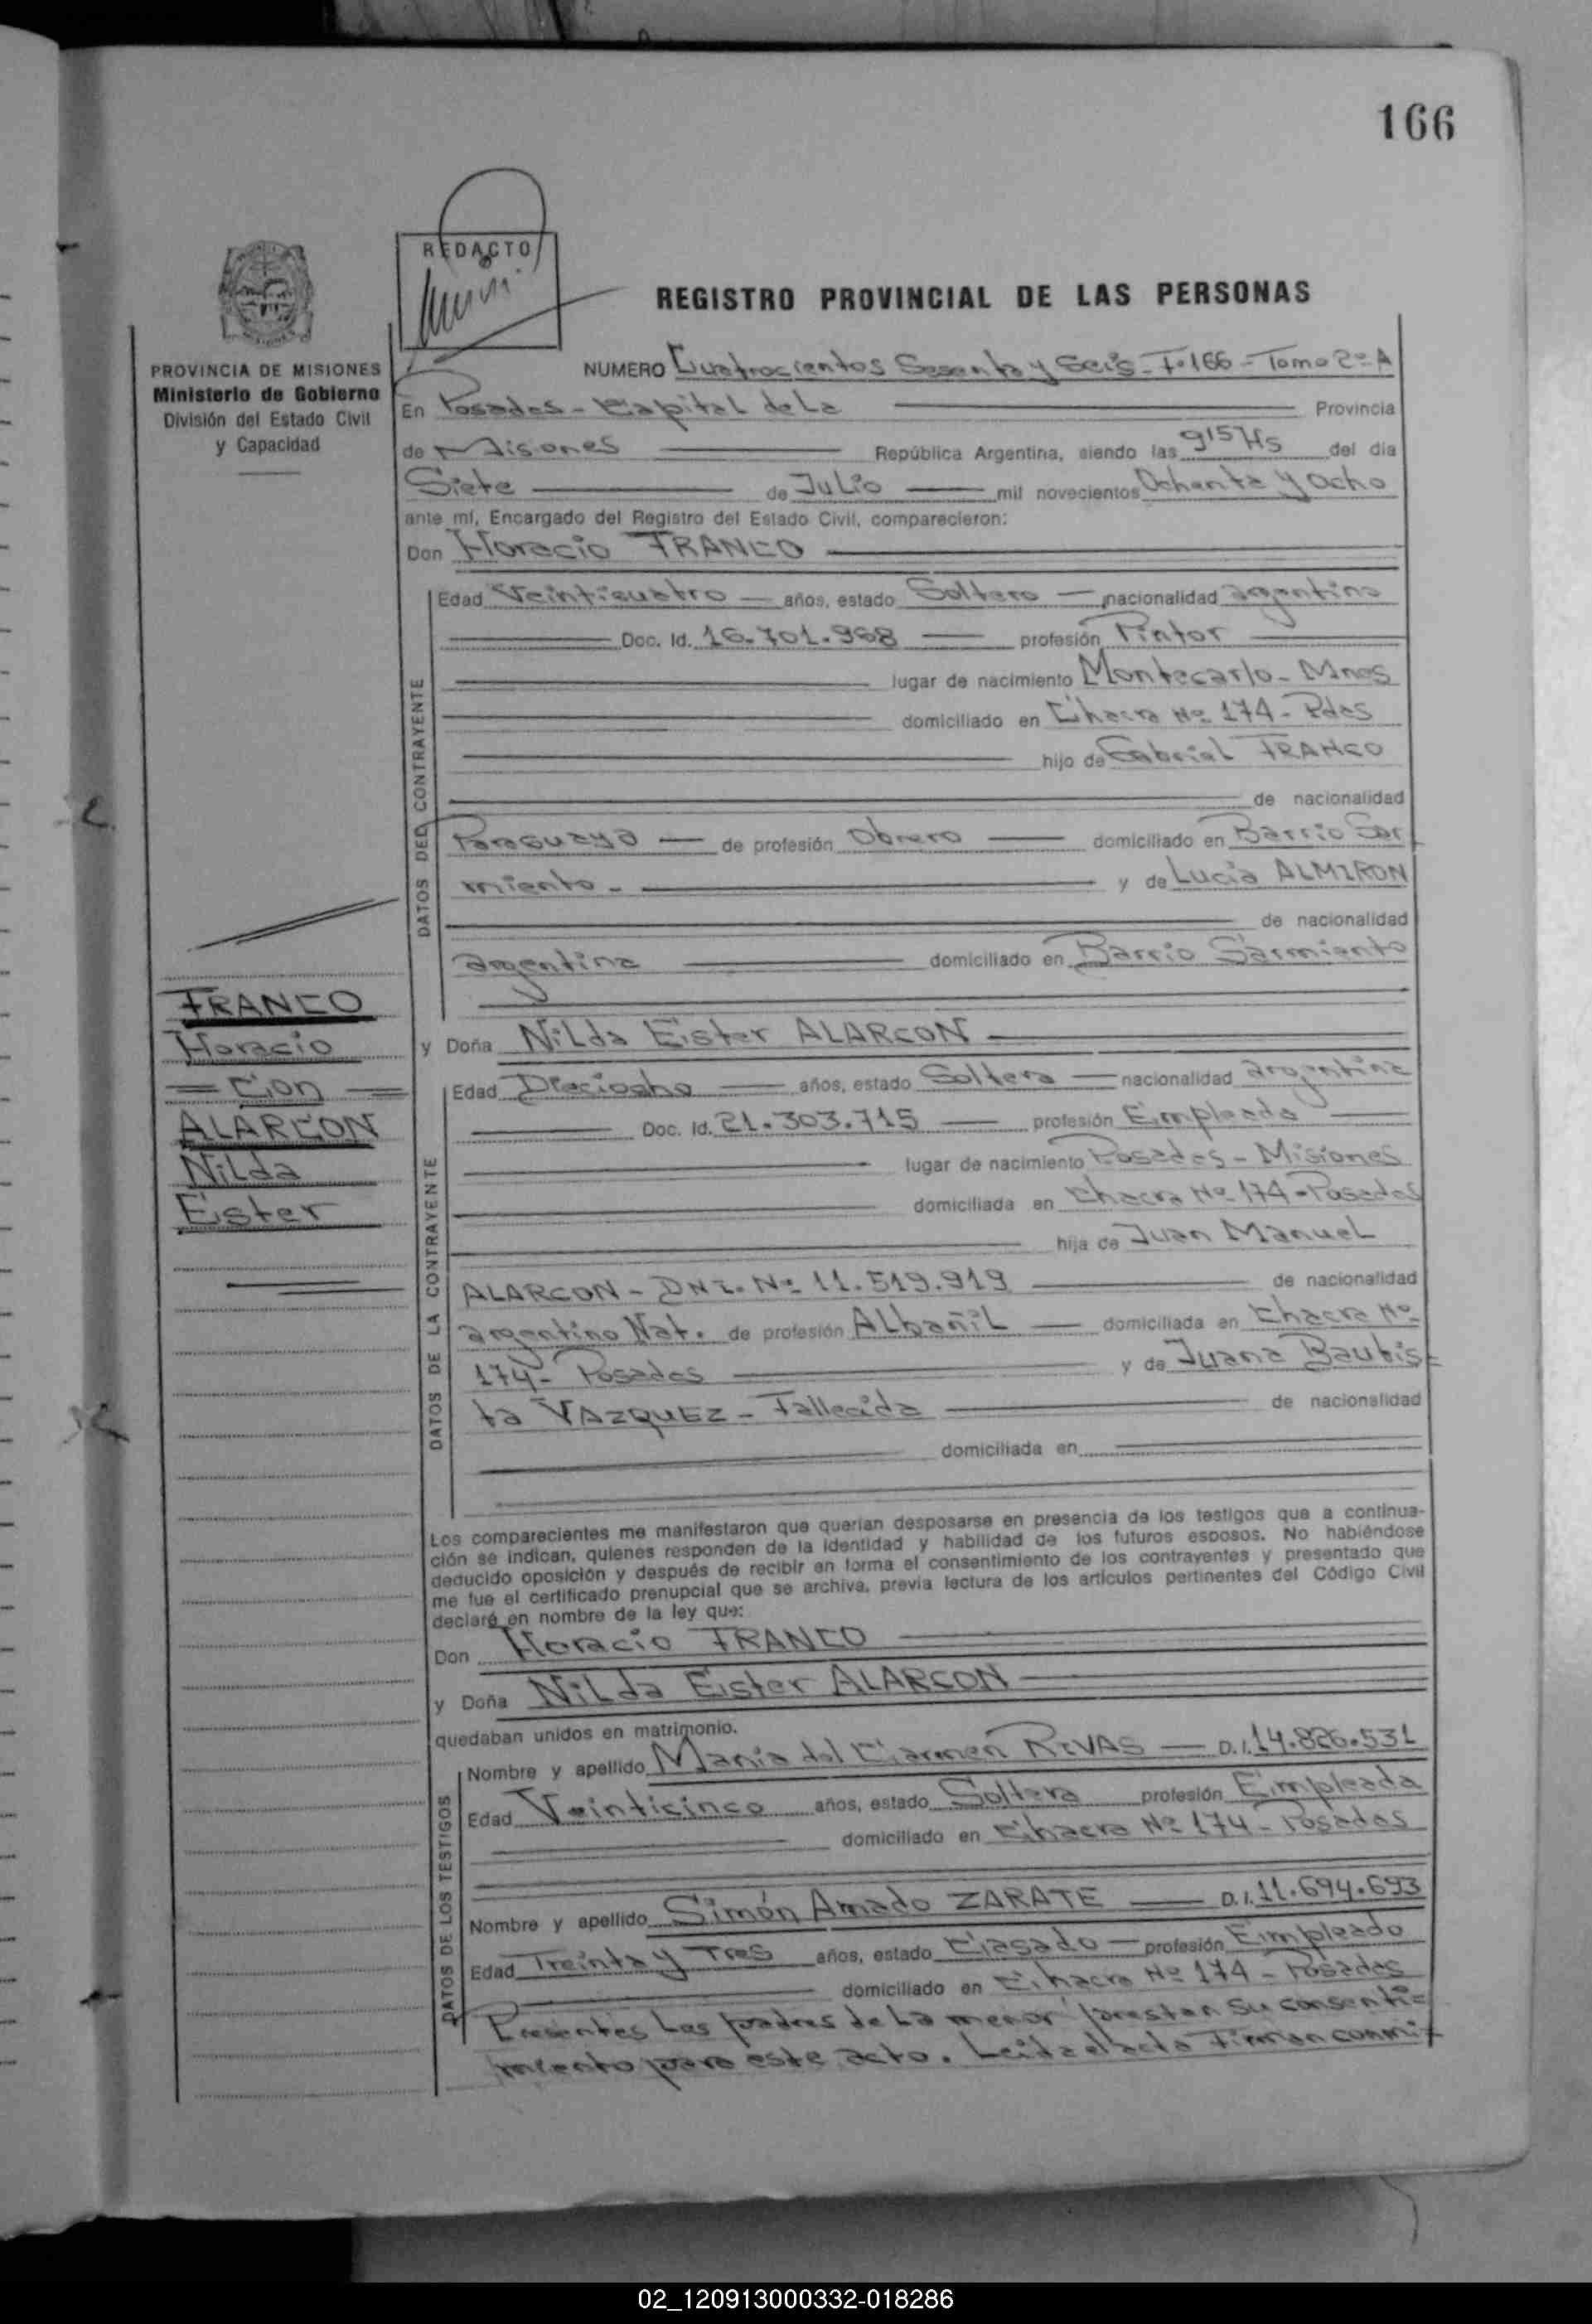 166
REDACTO
REGISTRO PROVINCIAL DE LAS PERSONAS
PROVINCIA DE MISIONES
Ministerio de Gobierno
División del Estado Civil
y Capacidad
NUMERO Cuatrocientos Sesenta y Seis - Fº 166 - Tomo 2º A
En Posadas - Capital de La Provincia
de Misiones República Argentina, siendo las 9 15 Hs del día
Siete de Julio mil novecientos Ochenta y Ocho
ante mí, Encargado del Registro del Estado Civil, comparecieron:
Don Horacio FRANCO
DATOS DEL CONTRAYENTE
Edad Veinticuatro años, estado Soltero nacionalidad argentina
Doc. Id. 16.701.968 profesión Pintor
lugar de nacimiento Montecarlo - Mnes
domiciliado en Chacra Nº 174 - Pdas
hijo de Gabriel FRANCO
de nacionalidad
Paraguaya de profesión Obrero domiciliado en Barrio Sar
miento - y de Lucia ALMIRON
de nacionalidad
argentina domiciliado en Barrio Sarmiento
FRANCO
Horacio
= Con =
ALARCON
Nilda
Ester
y Doña Nilda Ester ALARCON
DATOS DE LA CONTRAYENTE
Edad Dieciocho años, estado Soltera nacionalidad argentina
Doc. Id. 21.303.715 profesión Empleada
lugar de nacimiento Posadas - Misiones
domiciliada en Chacra Nº 174 - Posadas
hija de Juan Manuel
ALARCON - DNI. Nº 11.519.919 de nacionalidad
argentino Nat. de profesión Albañil domiciliada en Chacra Nº
174 - Posadas y de Juana Bautis-
ta VAZQUEZ - Fallecida de nacionalidad
domiciliada en
Los comparecientes me manifestaron que querían desposarse en presencia de los testigos que a continua-
ción se indican, quienes responden de la identidad y habilidad de los futuros esposos. No habiéndose
deducido oposición y después de recibir en forma el consentimiento de los contrayentes y presentado que
me fue el certificado prenupcial que se archiva, previa lectura de los artículos pertinentes del Código Civil
declaré en nombre de la ley que:
Don Horacio FRANCO
y Doña Nilda Ester ALARCON
quedaban unidos en matrimonio.
DATOS DE LOS TESTIGOS
Nombre y apellido Maria del Carmen RIVAS D.I. 14.826.531
Edad Veinticinco años, estado Soltera profesión Empleada
domiciliado en Chacra Nº 174 - Posadas
Nombre y apellido Simón Amado ZARATE D.I. 11.694.693
Edad Treinta y Tres años, estado Casado profesión Empleado
domiciliado en Chacra Nº 174 - Posadas
Presentes Los padres de La menor prestan su consenti-
miento para este acto. Leida el acta Firman conmi-
02_120913000332-018286